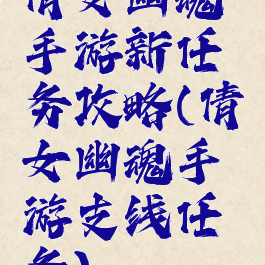 倩女幽魂
手游新任
务攻略(倩
女幽魂手
游支线任
务)